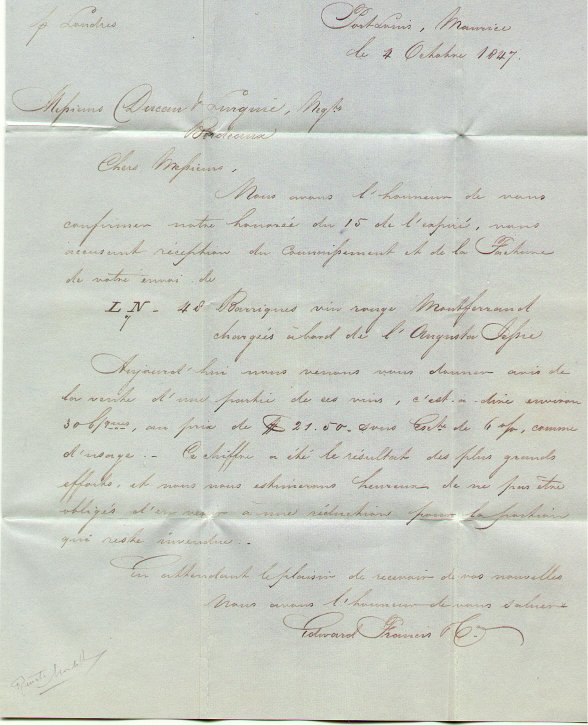 p Londres
Port Louis, Maurice
le 4 Octobre 1847.
Messieurs Ducau & Lurguié, Negts
Bordeaux
Chers Messieurs,
Nous avons l'honneur de vous
confirmer notre honorée du 15 de l'expiré, vous
accusant réception du Connoissement et de la Facture
de votre envoi de
LN - 48 Barriques vin rouge Montferrand
7
chargées à bord de l'Augusta
Aujourd'hui nous venons vous donner avis de
la vente d'une partie de ces vins, c'est-a-dire environ
30 b/ques, au prix de $ 21.50 - sous Escte de 6 o/o, comme
d'usage. - Ce chiffre a été le résultat des plus grands
efforts, et nous nous estimerons heureux de ne pas être
obligés d'en venir à une réduction pour la portion
qui reste invendue. -
En attendant le plaisir de recevoir de vos nouvelles
Nous avons l'honneur de vous saluer
Edward Francis & Co